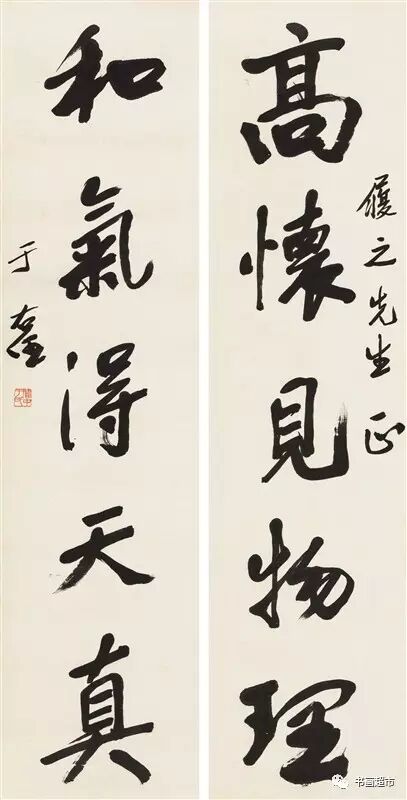 高懷見物理
之先生正
和氣得天真
于右任
书画超市